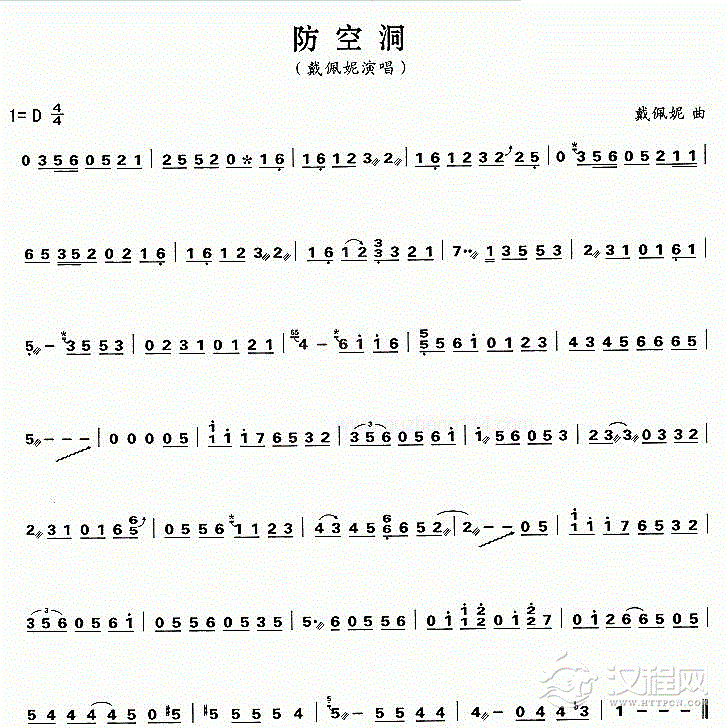 防空洞
（戴佩妮演唱）
1=D 4/4
戴佩妮 曲
0 3 5 6 0 5 2 1 | 2 5 5 2 0 * 1 6 | 1 6 1 2 3 2 | 1 6 1 2 3 2 2 5 | 0 3 5 6 0 5 2 1 1 |
6 5 3 5 2 0 2 1 6 | 1 6 1 2 3 2 | 1 6 1 2 3 3 3 2 1 | 7 ·· 1 3 5 5 3 | 2 3 1 0 1 6 1 |
5 – 3 5 5 3 | 0 2 3 1 0 1 2 1 | 4 – 6 1 1 6 | 5 5 5 6 1 0 1 2 3 | 4 3 4 5 6 6 6 5 |
5 – – – | 0 0 0 0 0 5 | 1 1 1 1 7 6 5 3 2 | 3 5 6 0 5 6 1 | 1 5 6 0 5 3 | 2 3 3 0 3 3 2 |
2 3 1 0 1 6 6 5 | 0 5 5 6 1 1 2 3 | 4 3 4 5 6 6 6 5 2 | 2 – – 0 5 | 1 1 1 1 7 6 5 3 2 |
3 5 6 0 5 6 1 | 0 5 6 0 5 3 | 5 · 6 0 5 5 6 | 0 1 1 2 2 0 1 2 7 | 0 1 2 6 6 0 5 |
5 4 4 4 4 5 0 #5 | #5 – – 0 5 | 5 – 5 4 4 3 | 1 – – – ‖
汉程网
WWW.HTTPCN.COM